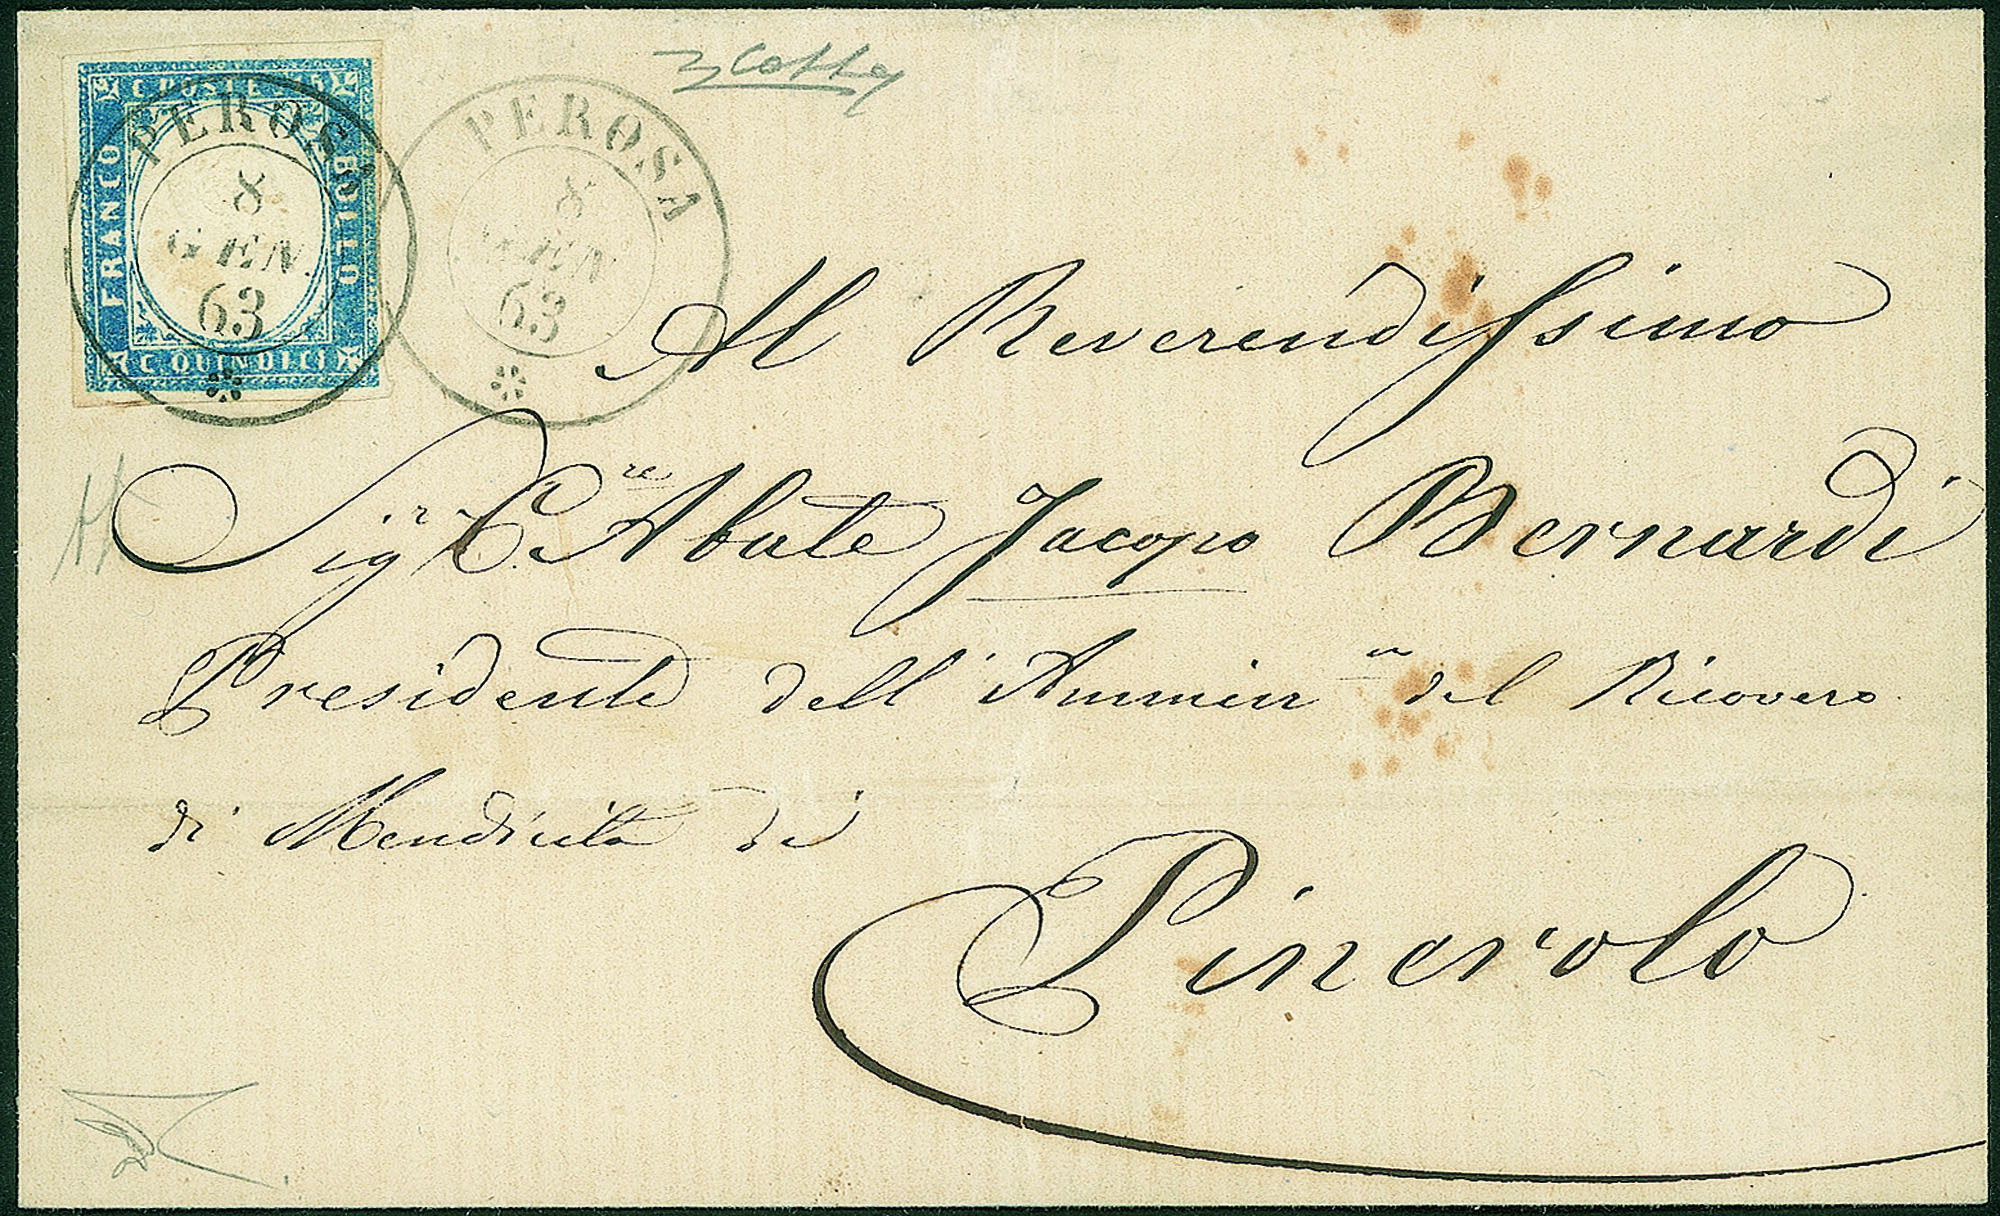 C POSTE 15
FRANCO
BOLLO
C QUINDICI
PEROSA
8
GEN.
63
PEROSA
8
GEN
63
Al Reverendissimo
Sig.r C.re Abate Jacopo Bernardi
Presidente dell'Ammin.ne del Ricovero
di Mendicità di
Pinerolo